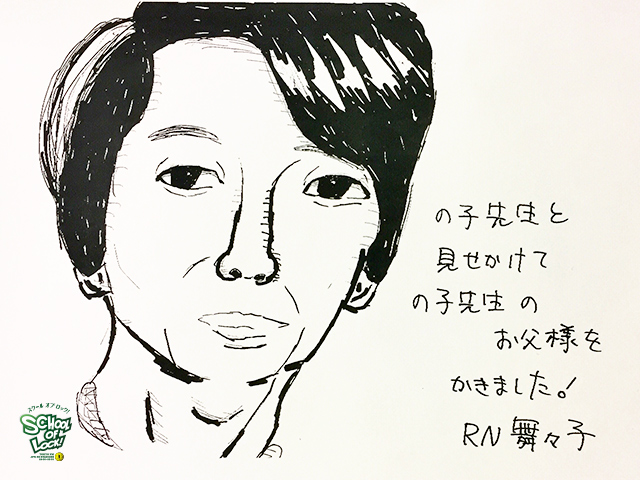 の子先生と
見せかけて
の子先生の
お父様を
かきました!
RN 舞々子
スクール オブ ロック!
SCHOOL
OF
LOCK!